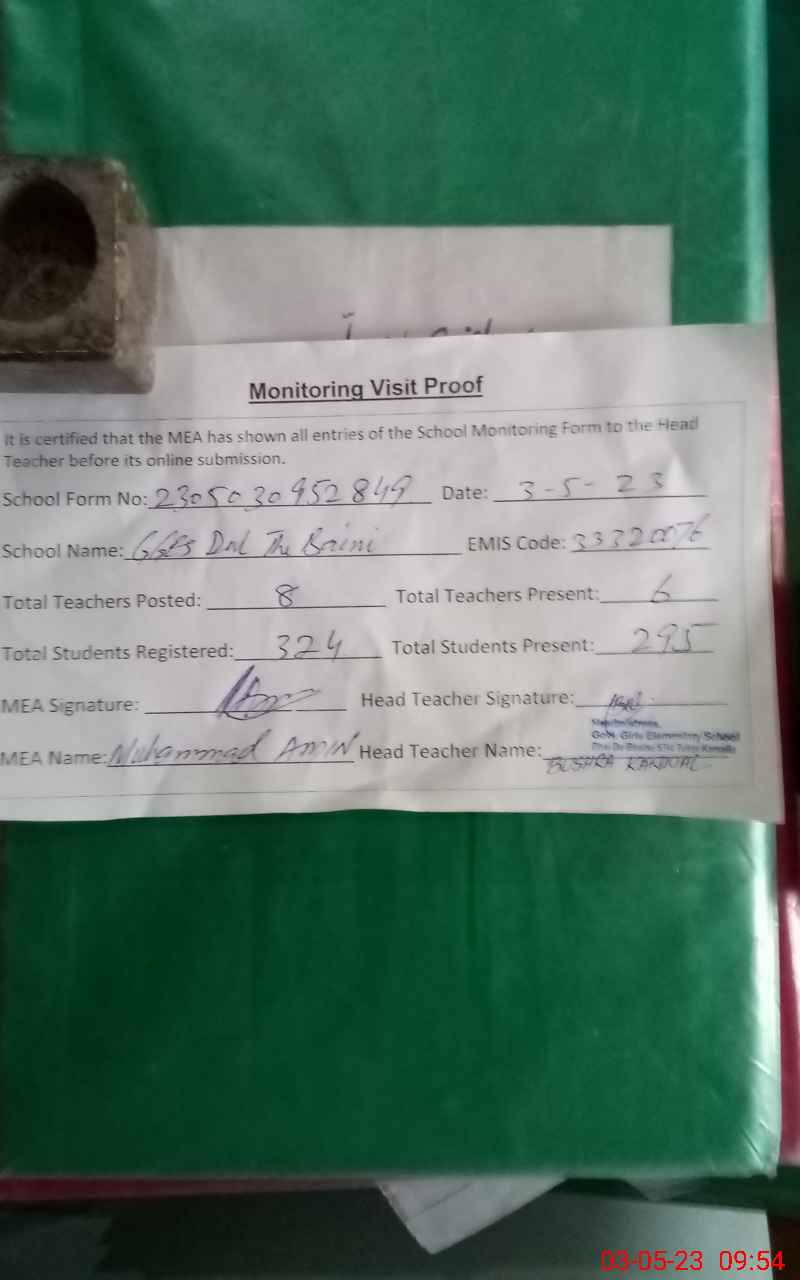 Monitoring Visit Proof
It is certified that the MEA has shown all entries of the School Monitoring Form to the Head
Teacher before its online submission.
School Form No: 2305030952849 Date: 3-5-23
School Name: GGES EMIS Code: 33320076
Total Teachers Posted: 8 Total Teachers Present: 6
Total Students Registered: 324 Total Students Present: 295
MEA Signature: Head Teacher Signature:
Govt. Girls Elementary School
MEA Name: Muhammad AMIN Head Teacher Name:
BUSHRA
03-05-23 09:54